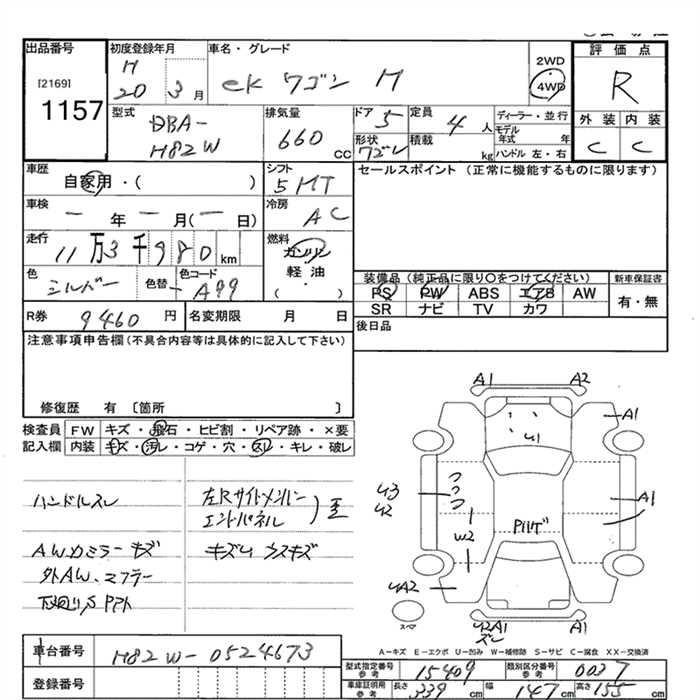 出品番号
[2169]
1157
初度登録年月
H
20 3月
車名・グレード
ek ワゴン M
2WD
4WD
評価点
R
外装 内装
C C
型式
DBA-
H82W
排気量
660 CC
ドア 5
形状
ワゴン
定員
4 人
積載
kg
ディーラー・並行
モデル年式 年
ハンドル 左・右
車歴
自家用・( )
シフト
5MT
セールスポイント (正常に機能するものに限ります)
車検
ー 年 ー 月 (ー 日)
冷房
AC
走行
11万3千980km
燃料
ガソリン
軽油
( ・ )
色
シルバー
色替 ー
色コード
A99
装備品 (純正品に限り〇をつけてください)
PS PW ABS エアB AW
SR ナビ TV カワ
新車保証書
有・無
R券 9460円
名変期限 月 日
後日品
注意事項申告欄(不具合内容等は具体的に記入して下さい)
修復歴 有 [箇所 ]
検査員
記入欄
FW キズ・飛石・ヒビ割・リペア跡・×要
内装 キズ・汚レ・コゲ・穴・スレ・キレ・破レ
ハンドルスレ
AWカミラーキズ
外AW、マフラー
左Rサイドメンバー
エンドパネル
キズU ウスキズ
A1 A2
A1
U1
U3
U2
A1
W2
UA2
U2A1
A1
スペア
A-キズ E-エクボ U-凹み W-補修跡 S-サビ C-腐食 XX-交換済
車台番号 H82W-0524673
登録番号
型式指定番号
参考
15409
類別区分番号
参考
0037
車庫証明用
参考
長さ 339cm 幅 147cm 高さ 155cm